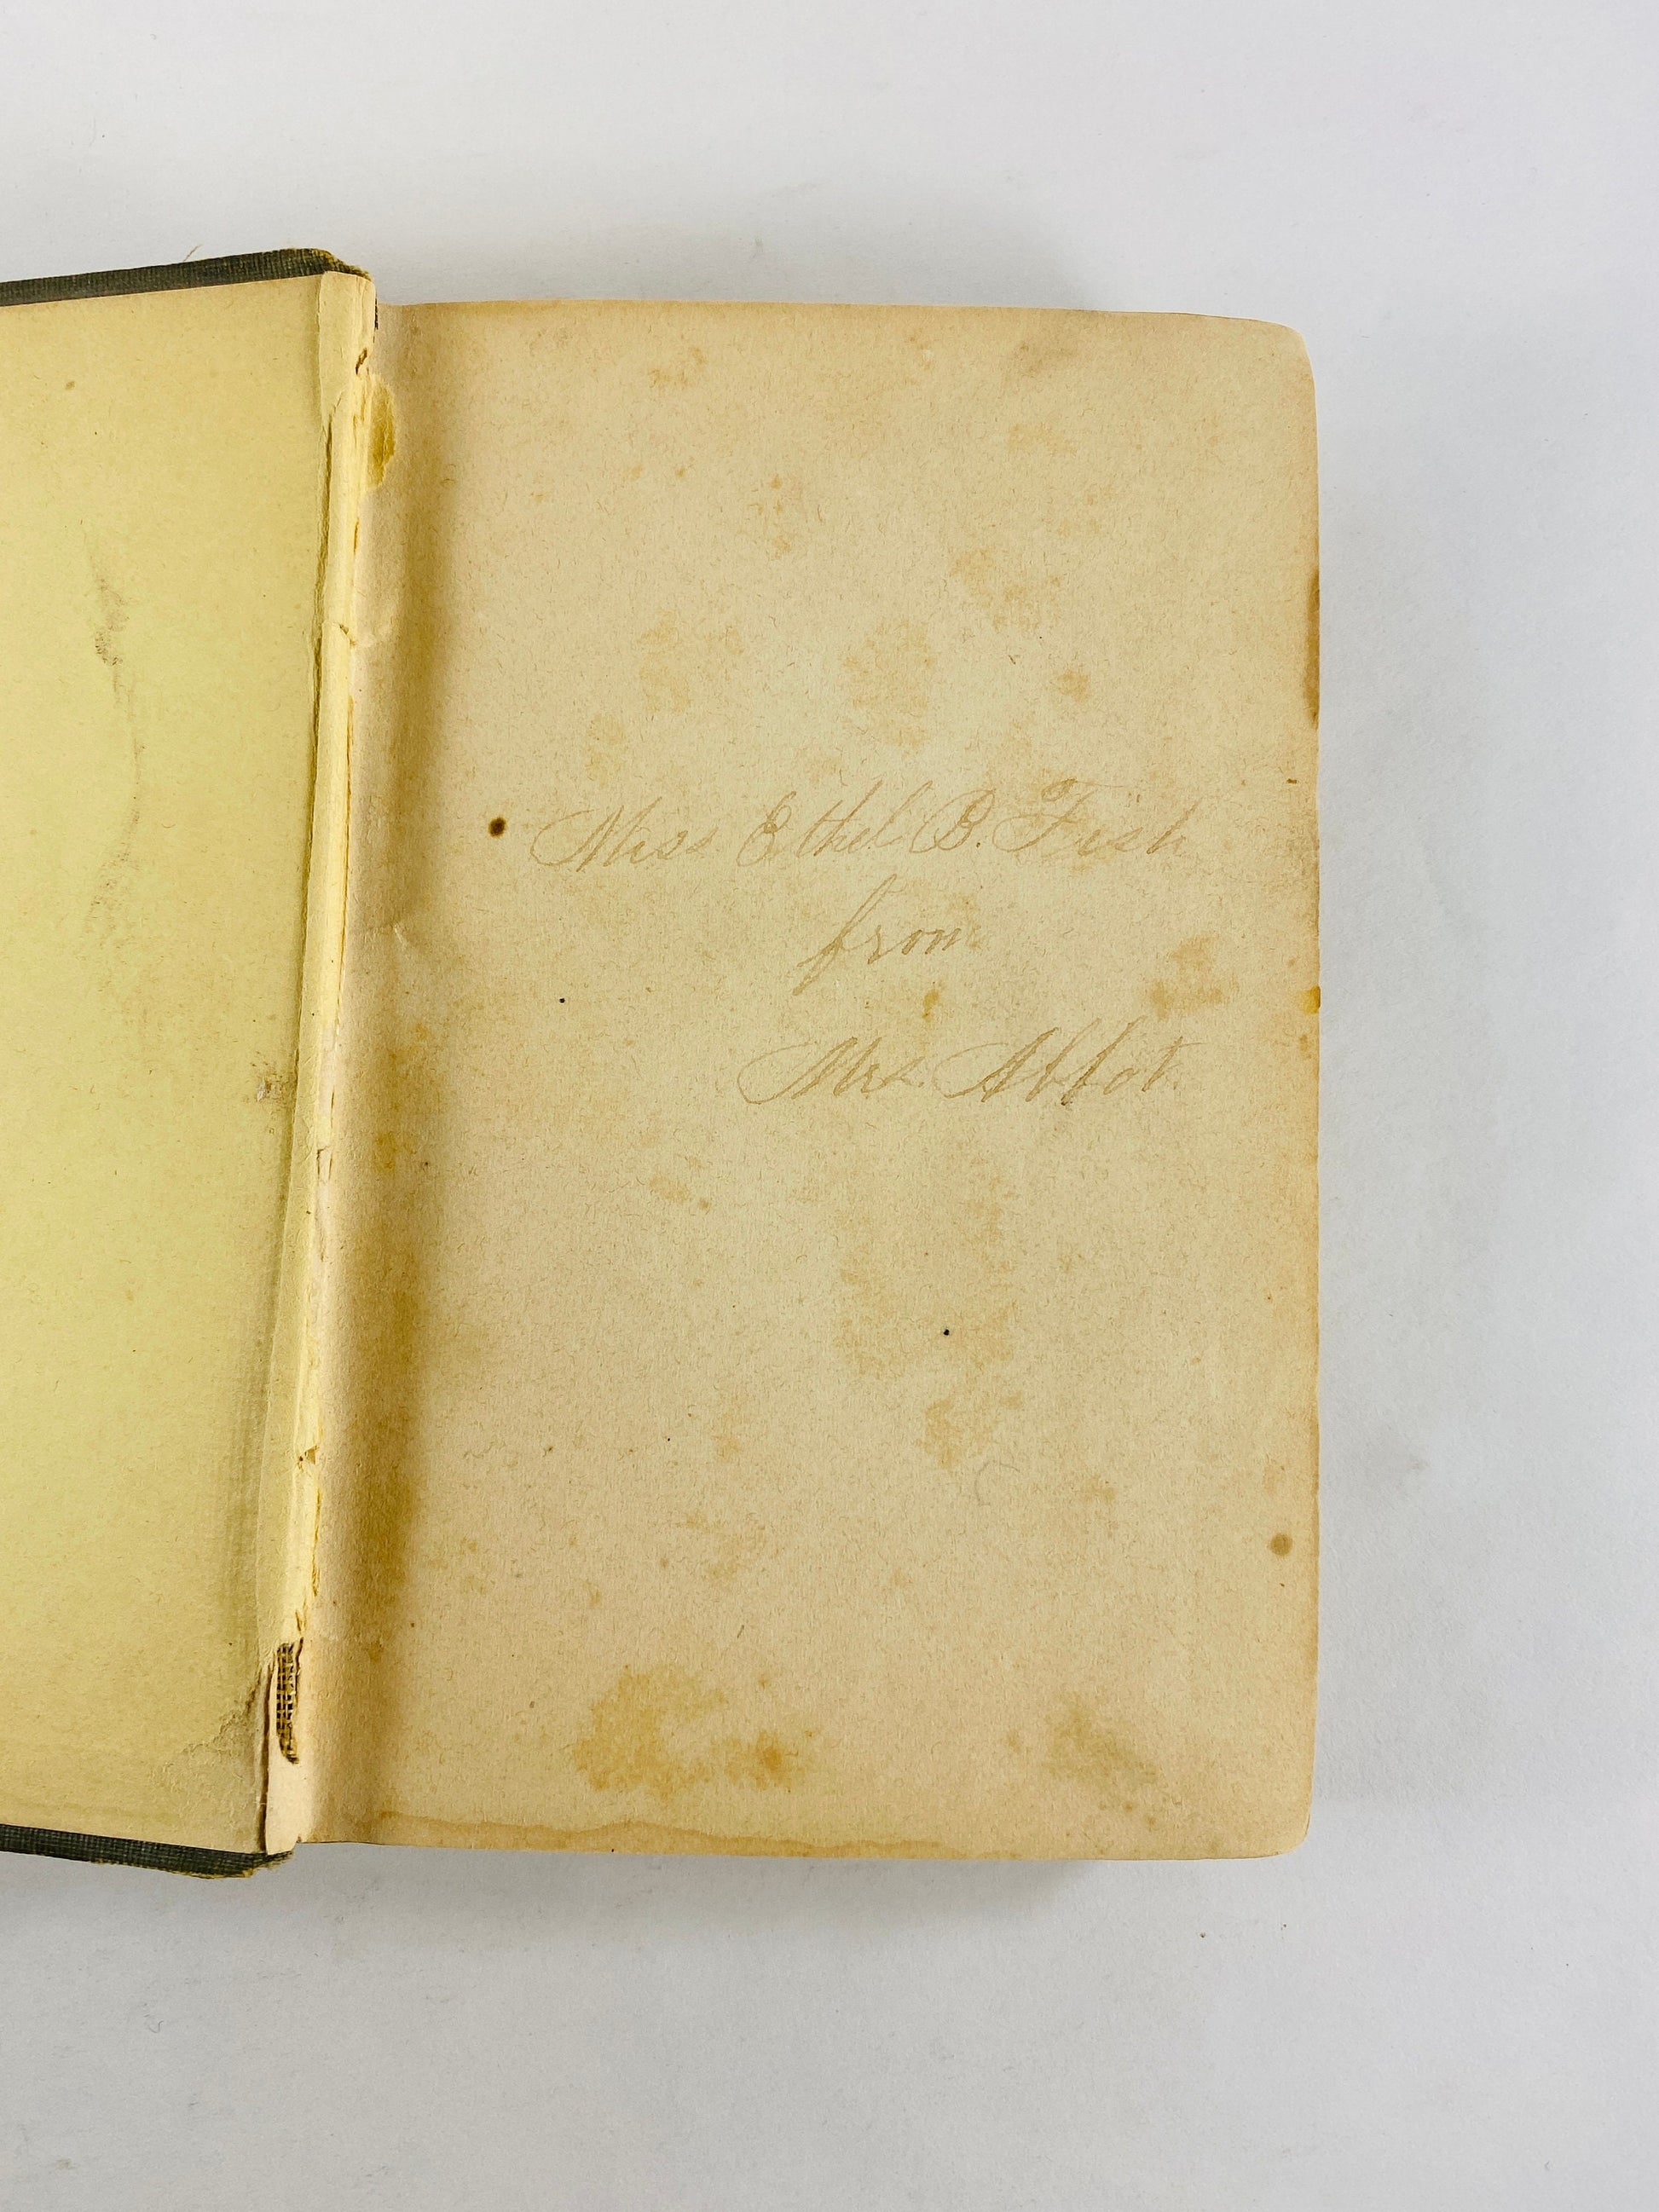 Miss Ethel B. Fish
from
Mrs. Abbot.